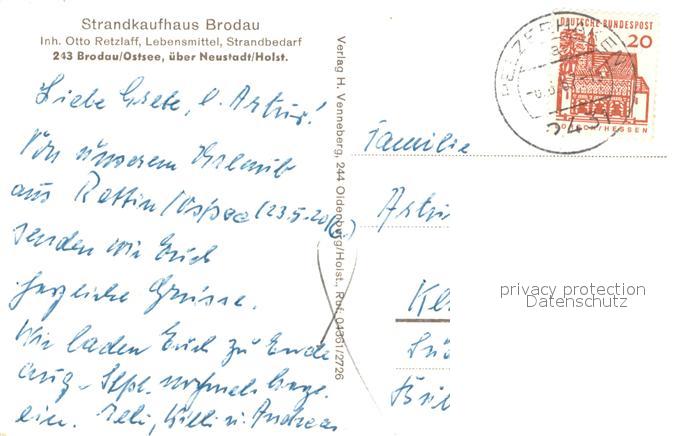 Strandkaufhaus Brodau
Inh. Otto Retzlaff, Lebensmittel, Strandbedarf
243 Brodau/Ostsee, über Neustadt/Holst.
Liebe Grete, l. Artur!
Von unserem Urlaub
aus Rettin/Ostsee (23.5-20/6)
senden wir Euch
herzliche Grüsse.
Wir laden Euch zu Ende
Aug - Sept. nochmals
ein. Willi u. Andreas
Verlag H. Venneberg, 244 Oldenburg/Holst., Ruf: 04361/2726
DEUTSCHE BUNDESPOST
20
HESSEN
PELZERHAKEN
2431
Familie
Artur
privacy protection
Datenschutz